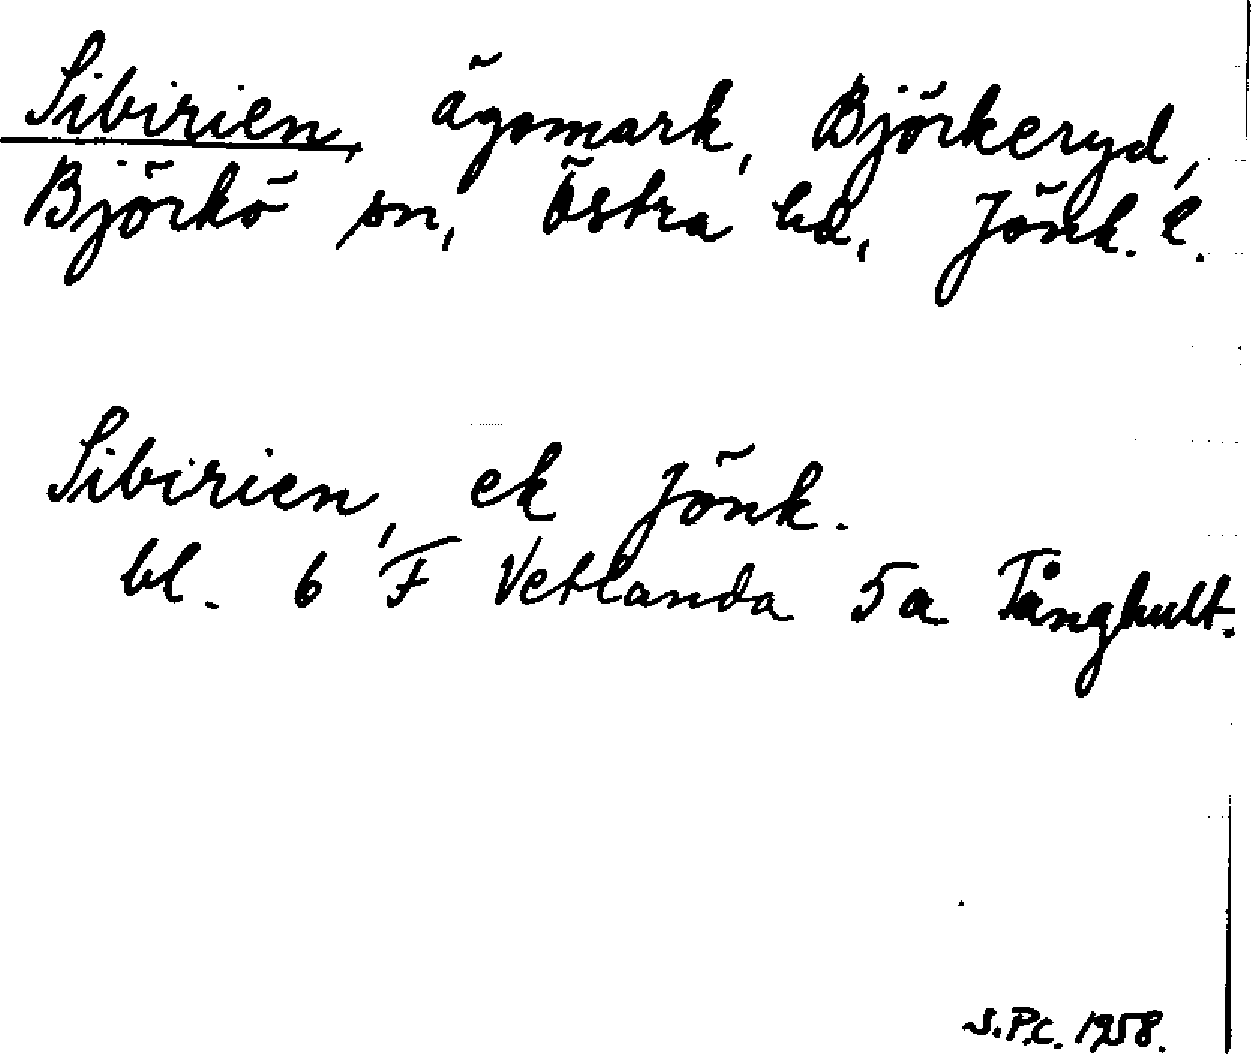 Sibirien, ägomark, Björkeryd,
Björkö sn, Östra hd, Jönk. l.
Sibirien, ek Jönk.
bl. 6 F Vetlanda 5a Tånghult.
S.P.C. 1958.